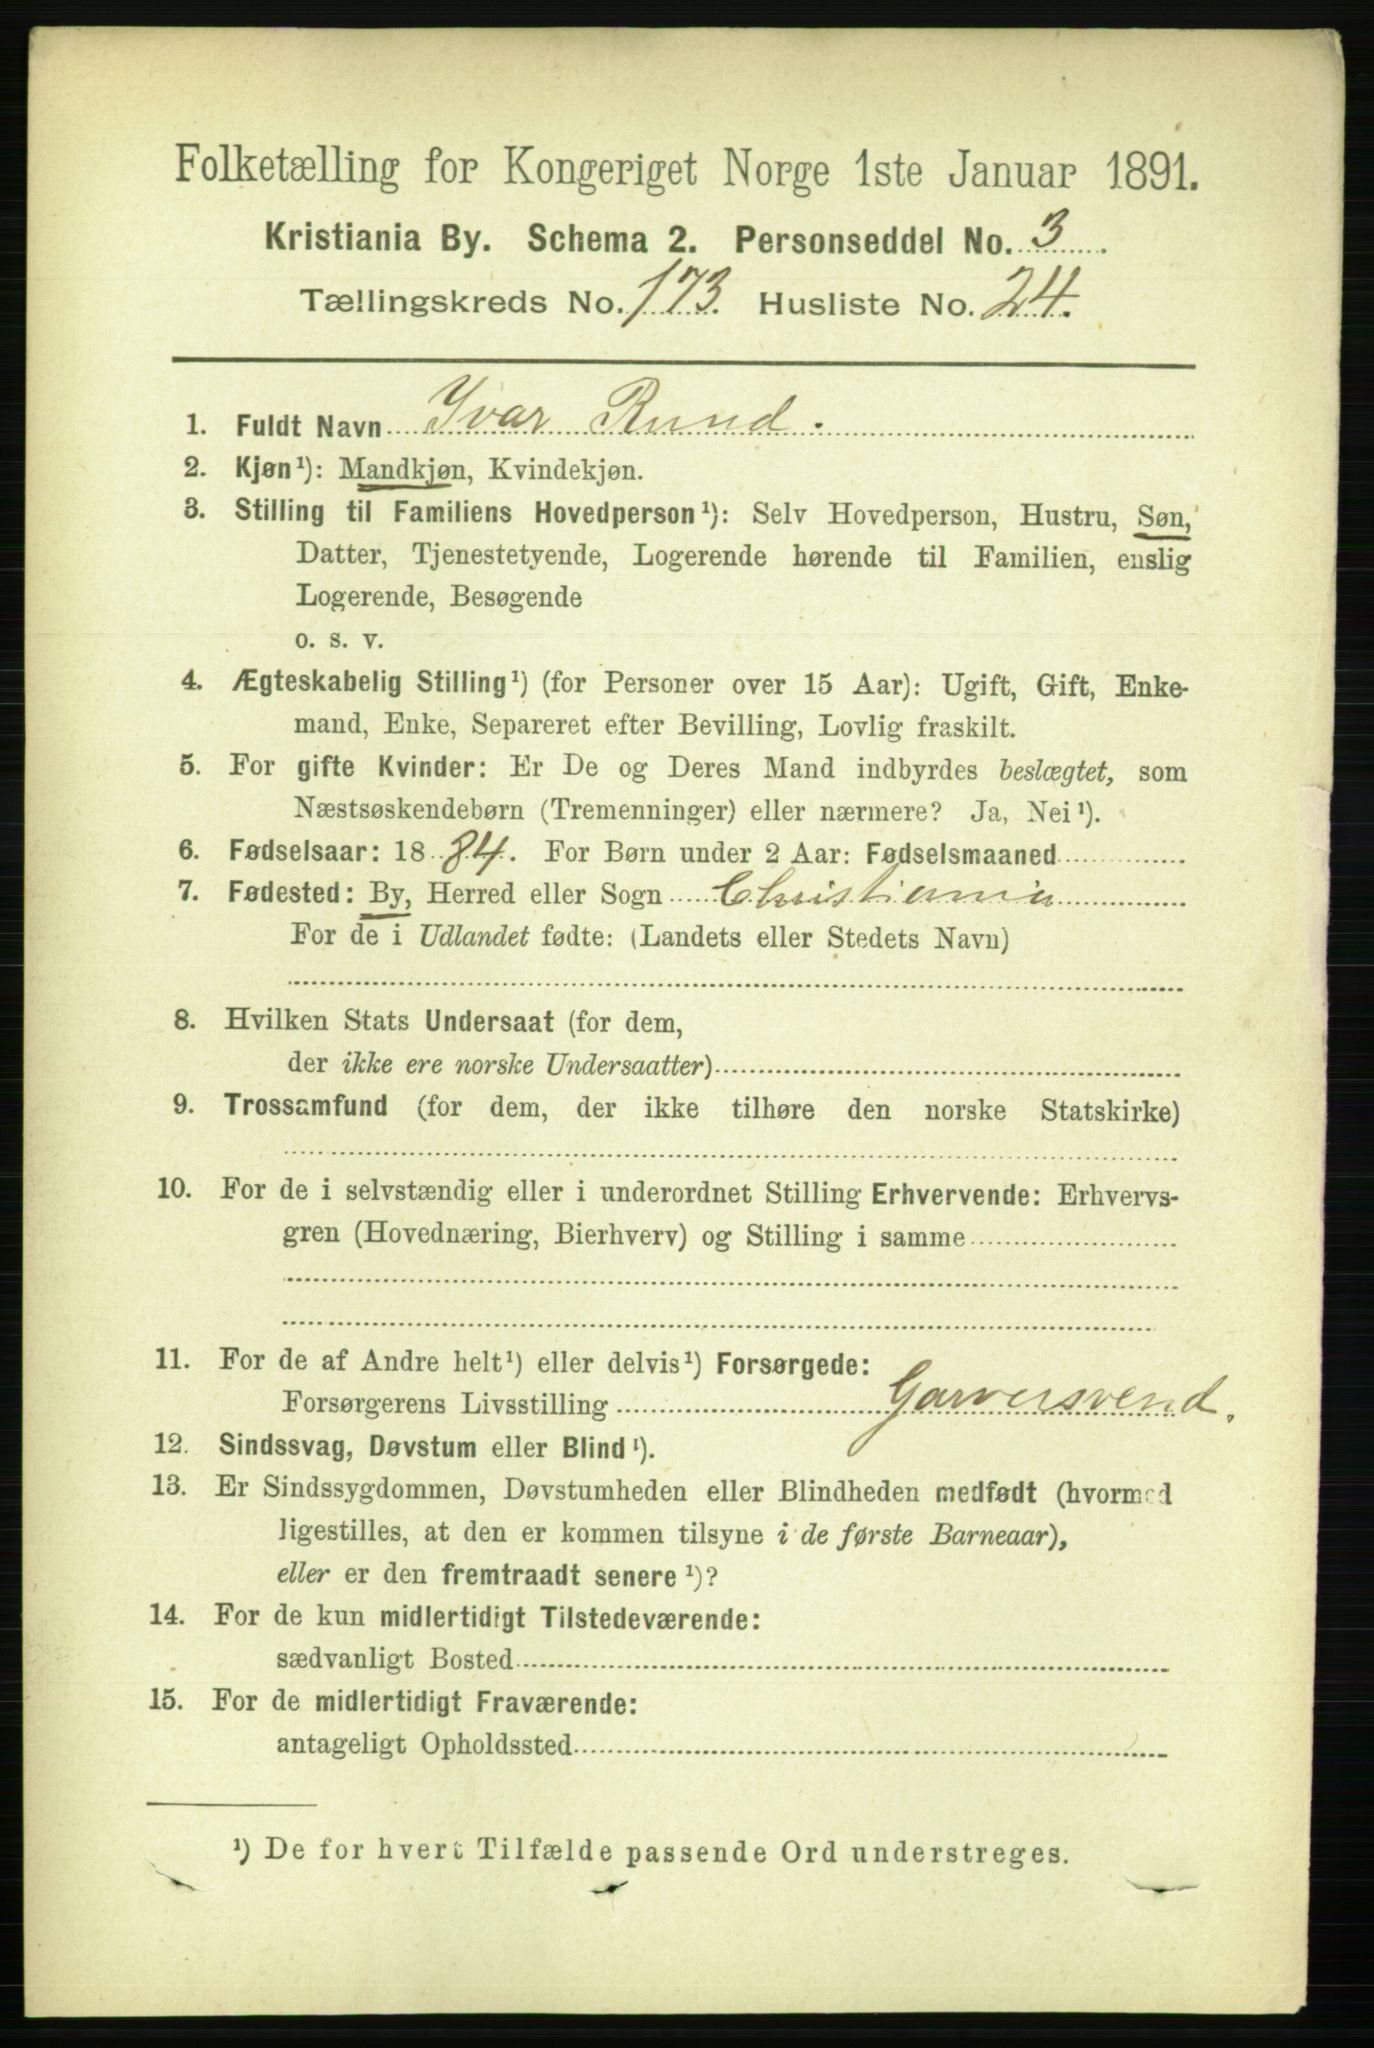 Folketælling for Kongeriget Norge 1ste Januar 1891.
Kristiania By. Schema 2. Personseddel No. 3
Tællingskreds No. 173. Husliste No. 24.
1. Fuldt Navn Yvar Rund.
2. Kjøn¹): Mandkjøn, Kvindekjøn.
3. Stilling til Familiens Hovedperson¹): Selv Hovedperson, Hustru, Søn,
Datter, Tjenestetyende, Logerende hørende til Familien, enslig
Logerende, Besøgende
o. s. v.
4. Ægteskabelig Stilling¹) (for Personer over 15 Aar): Ugift, Gift, Enke-
mand, Enke, Separeret efter Bevilling, Lovlig fraskilt.
5. For gifte Kvinder: Er De og Deres Mand indbyrdes beslægtet, som
Næstsøskendebørn (Tremenninger) eller nærmere? Ja, Nei¹).
6. Fødselsaar: 1884. For Børn under 2 Aar: Fødselsmaaned
7. Fødested: By, Herred eller Sogn Christiania
For de i Udlandet fødte: (Landets eller Stedets Navn)
8. Hvilken Stats Undersaat (for dem,
der ikke ere norske Undersaatter)
9. Trossamfund (for dem, der ikke tilhøre den norske Statskirke)
10. For de i selvstændig eller i underordnet Stilling Erhvervende: Erhvervs-
gren (Hovednæring, Bierhverv) og Stilling i samme
11. For de af Andre helt¹) eller delvis¹) Forsørgede:
Forsørgerens Livsstilling Garversvend.
12. Sindssvag, Døvstum eller Blind¹).
13. Er Sindssygdommen, Døvstumheden eller Blindheden medfødt (hvormed
ligestilles, at den er kommen tilsyne i de første Barneaar),
eller er den fremtraadt senere¹)?
14. For de kun midlertidigt Tilstedeværende:
sædvanligt Bosted
15. For de midlertidigt Fraværende:
antageligt Opholdssted
¹) De for hvert Tilfælde passende Ord understreges.